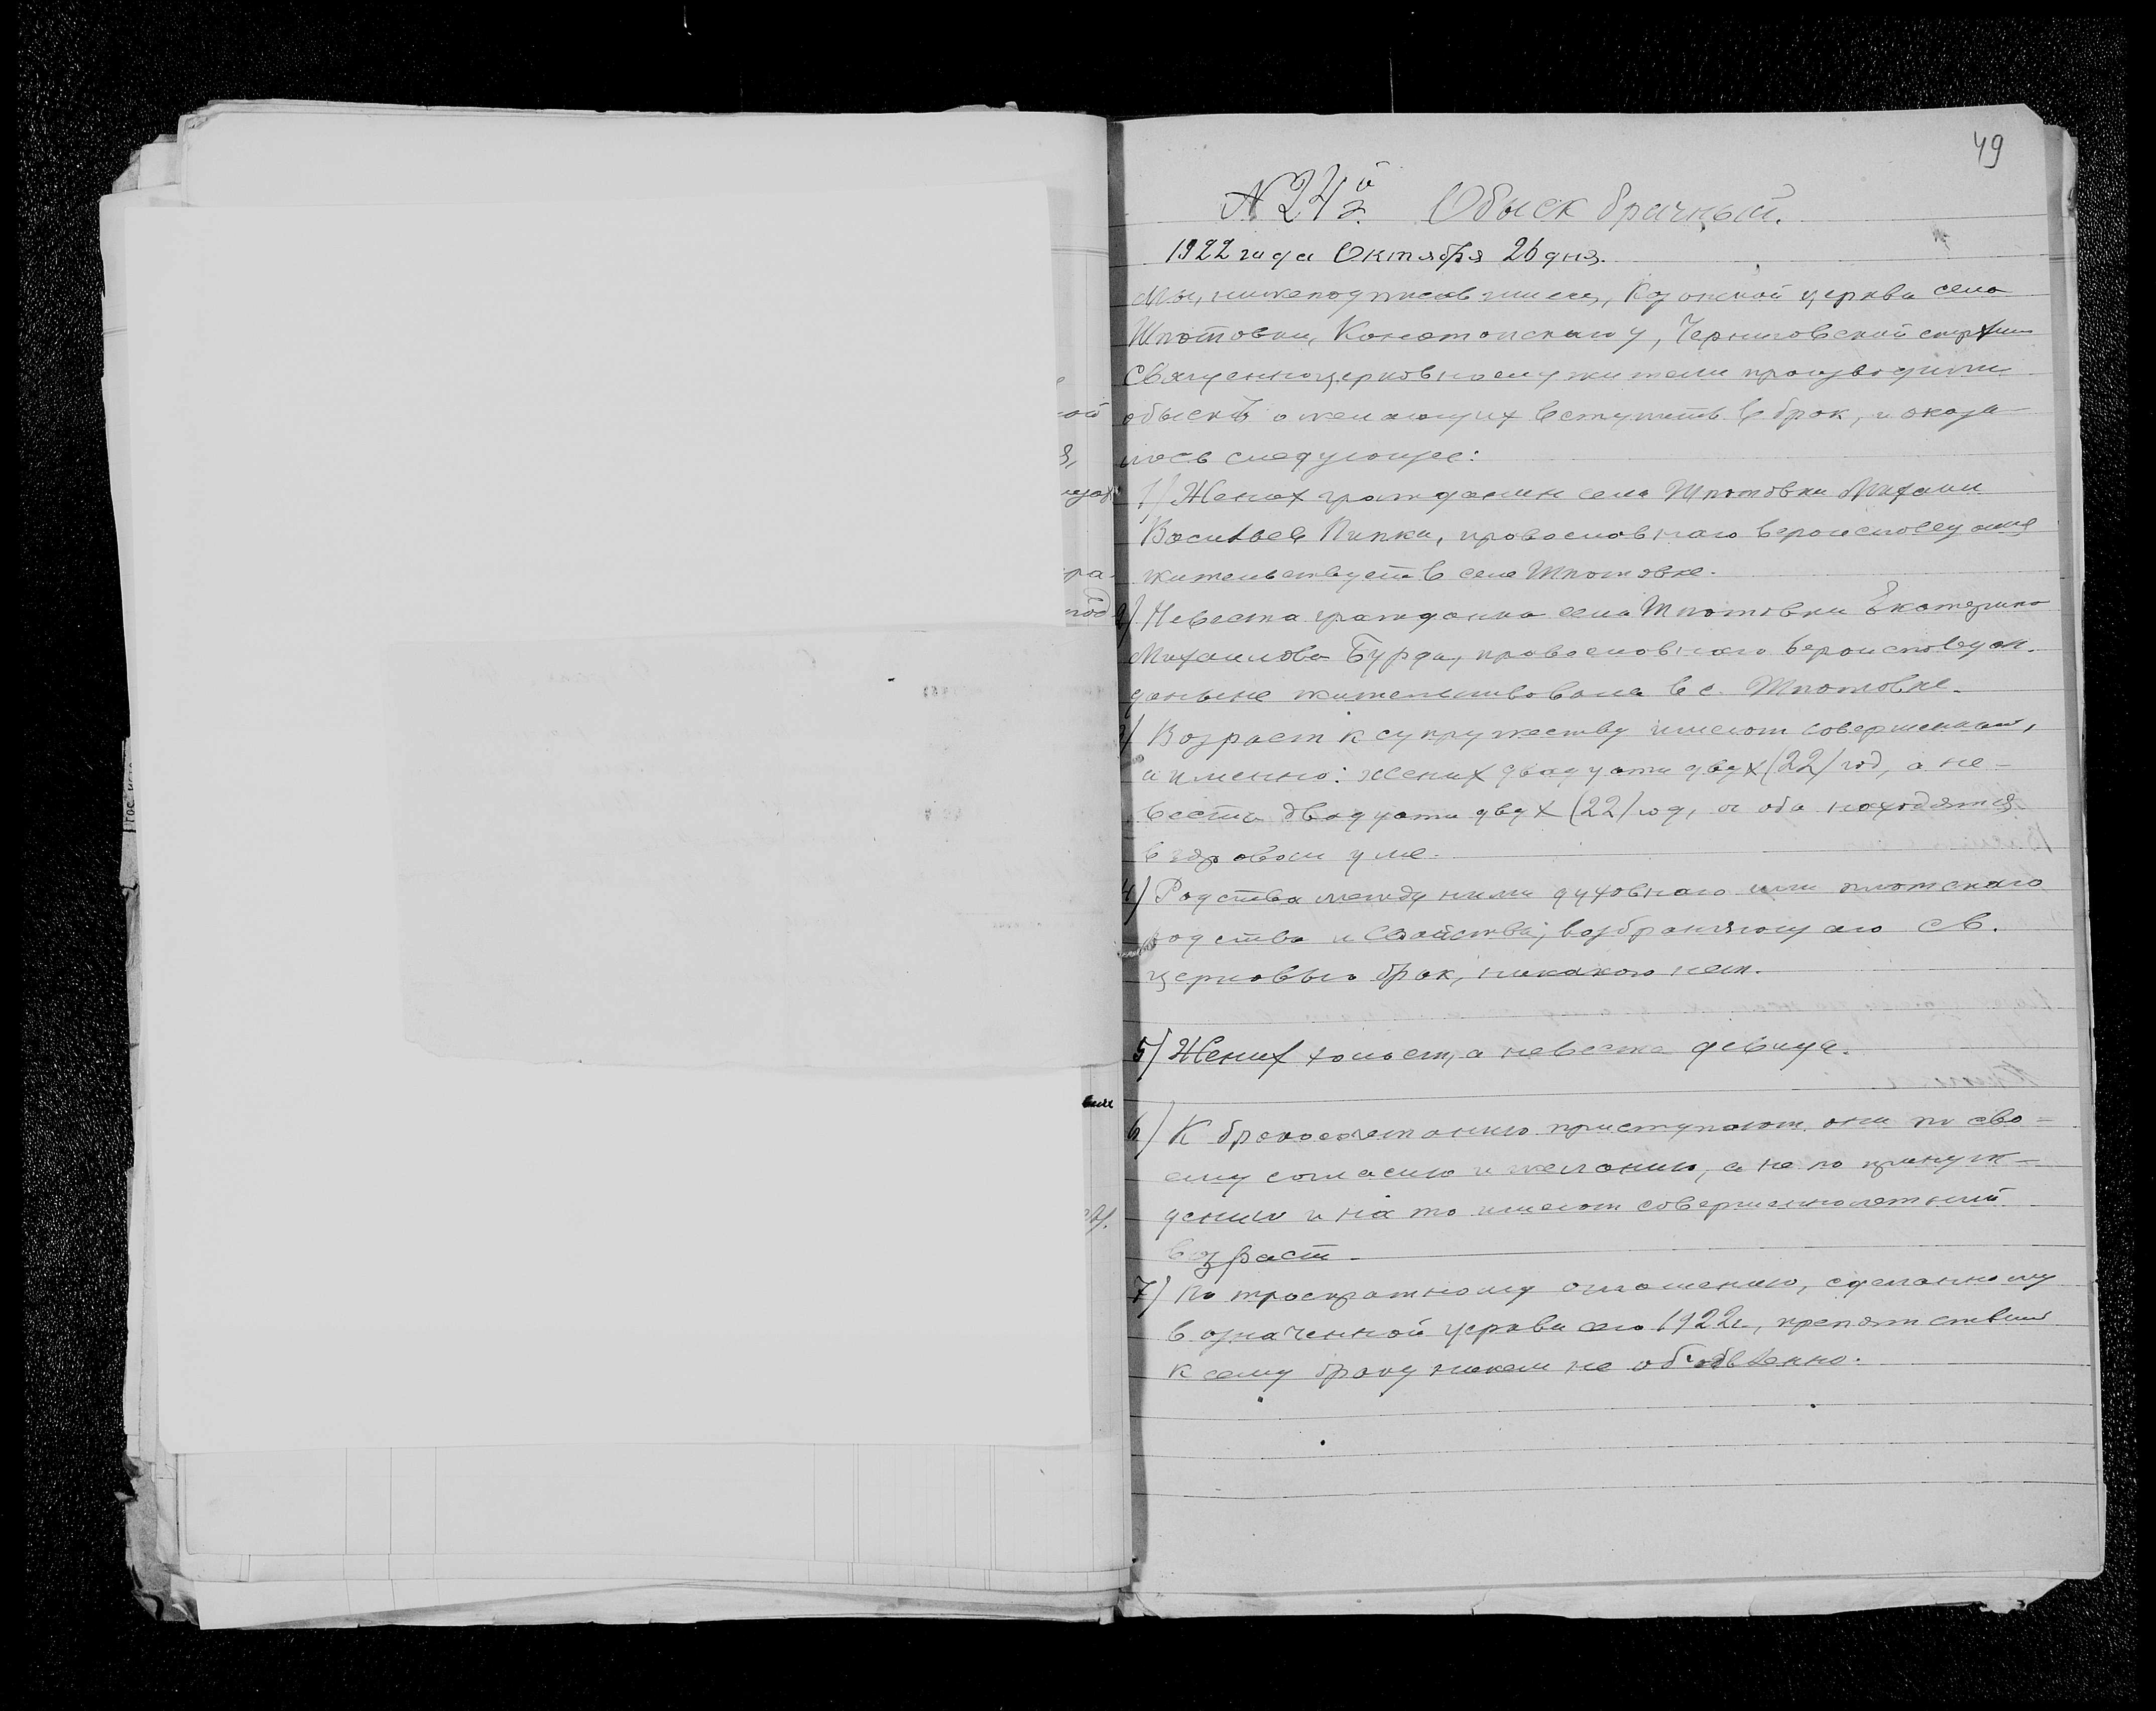 49
N 24й Обыск брачный.
1922 года Октября 26 дня.
Мы, нижеподписавшиеся, Казанской церкви села
Шпотовки, Конотопскаго у, Черниговской епархии
Священноцерковнослужители производили
обыскъ о желающих вступить в брак, и оказа-
лось следующее:
1) Жених гражданин села Шпотовки Михаил
Васильев Пипка, православнаго вероисповедания
жительствует в селе Шпотовке.
2) Невеста гражданка села Шпотовки Екатерина
Михаилова Бурда, православнаго вероисповедан.
доныне жительствовала в с. Шпотовке.
3) Возраст к супружеству имеют совершенный,
а именно: жених двадцати двух (22) год, а не-
веста двадцати двух (22) год, и оба находятся
в здровом уме.
4) Родства между ними духовнаго или плотскаго
родства и свойства, возбраняющаго св.
церковью брак, никакого нет.
5) Жених холост, а невеста девица.
6) К бракосочетанию приступают они по сво=
ему согласию и желанию, а не по принуж-
дению и на то имеют совершеннолетний
возраст
7) По троекратному оглашению, сделанному
в означенной церкви сего 1922 г., препятствий
к сему браку никем не объявленно.